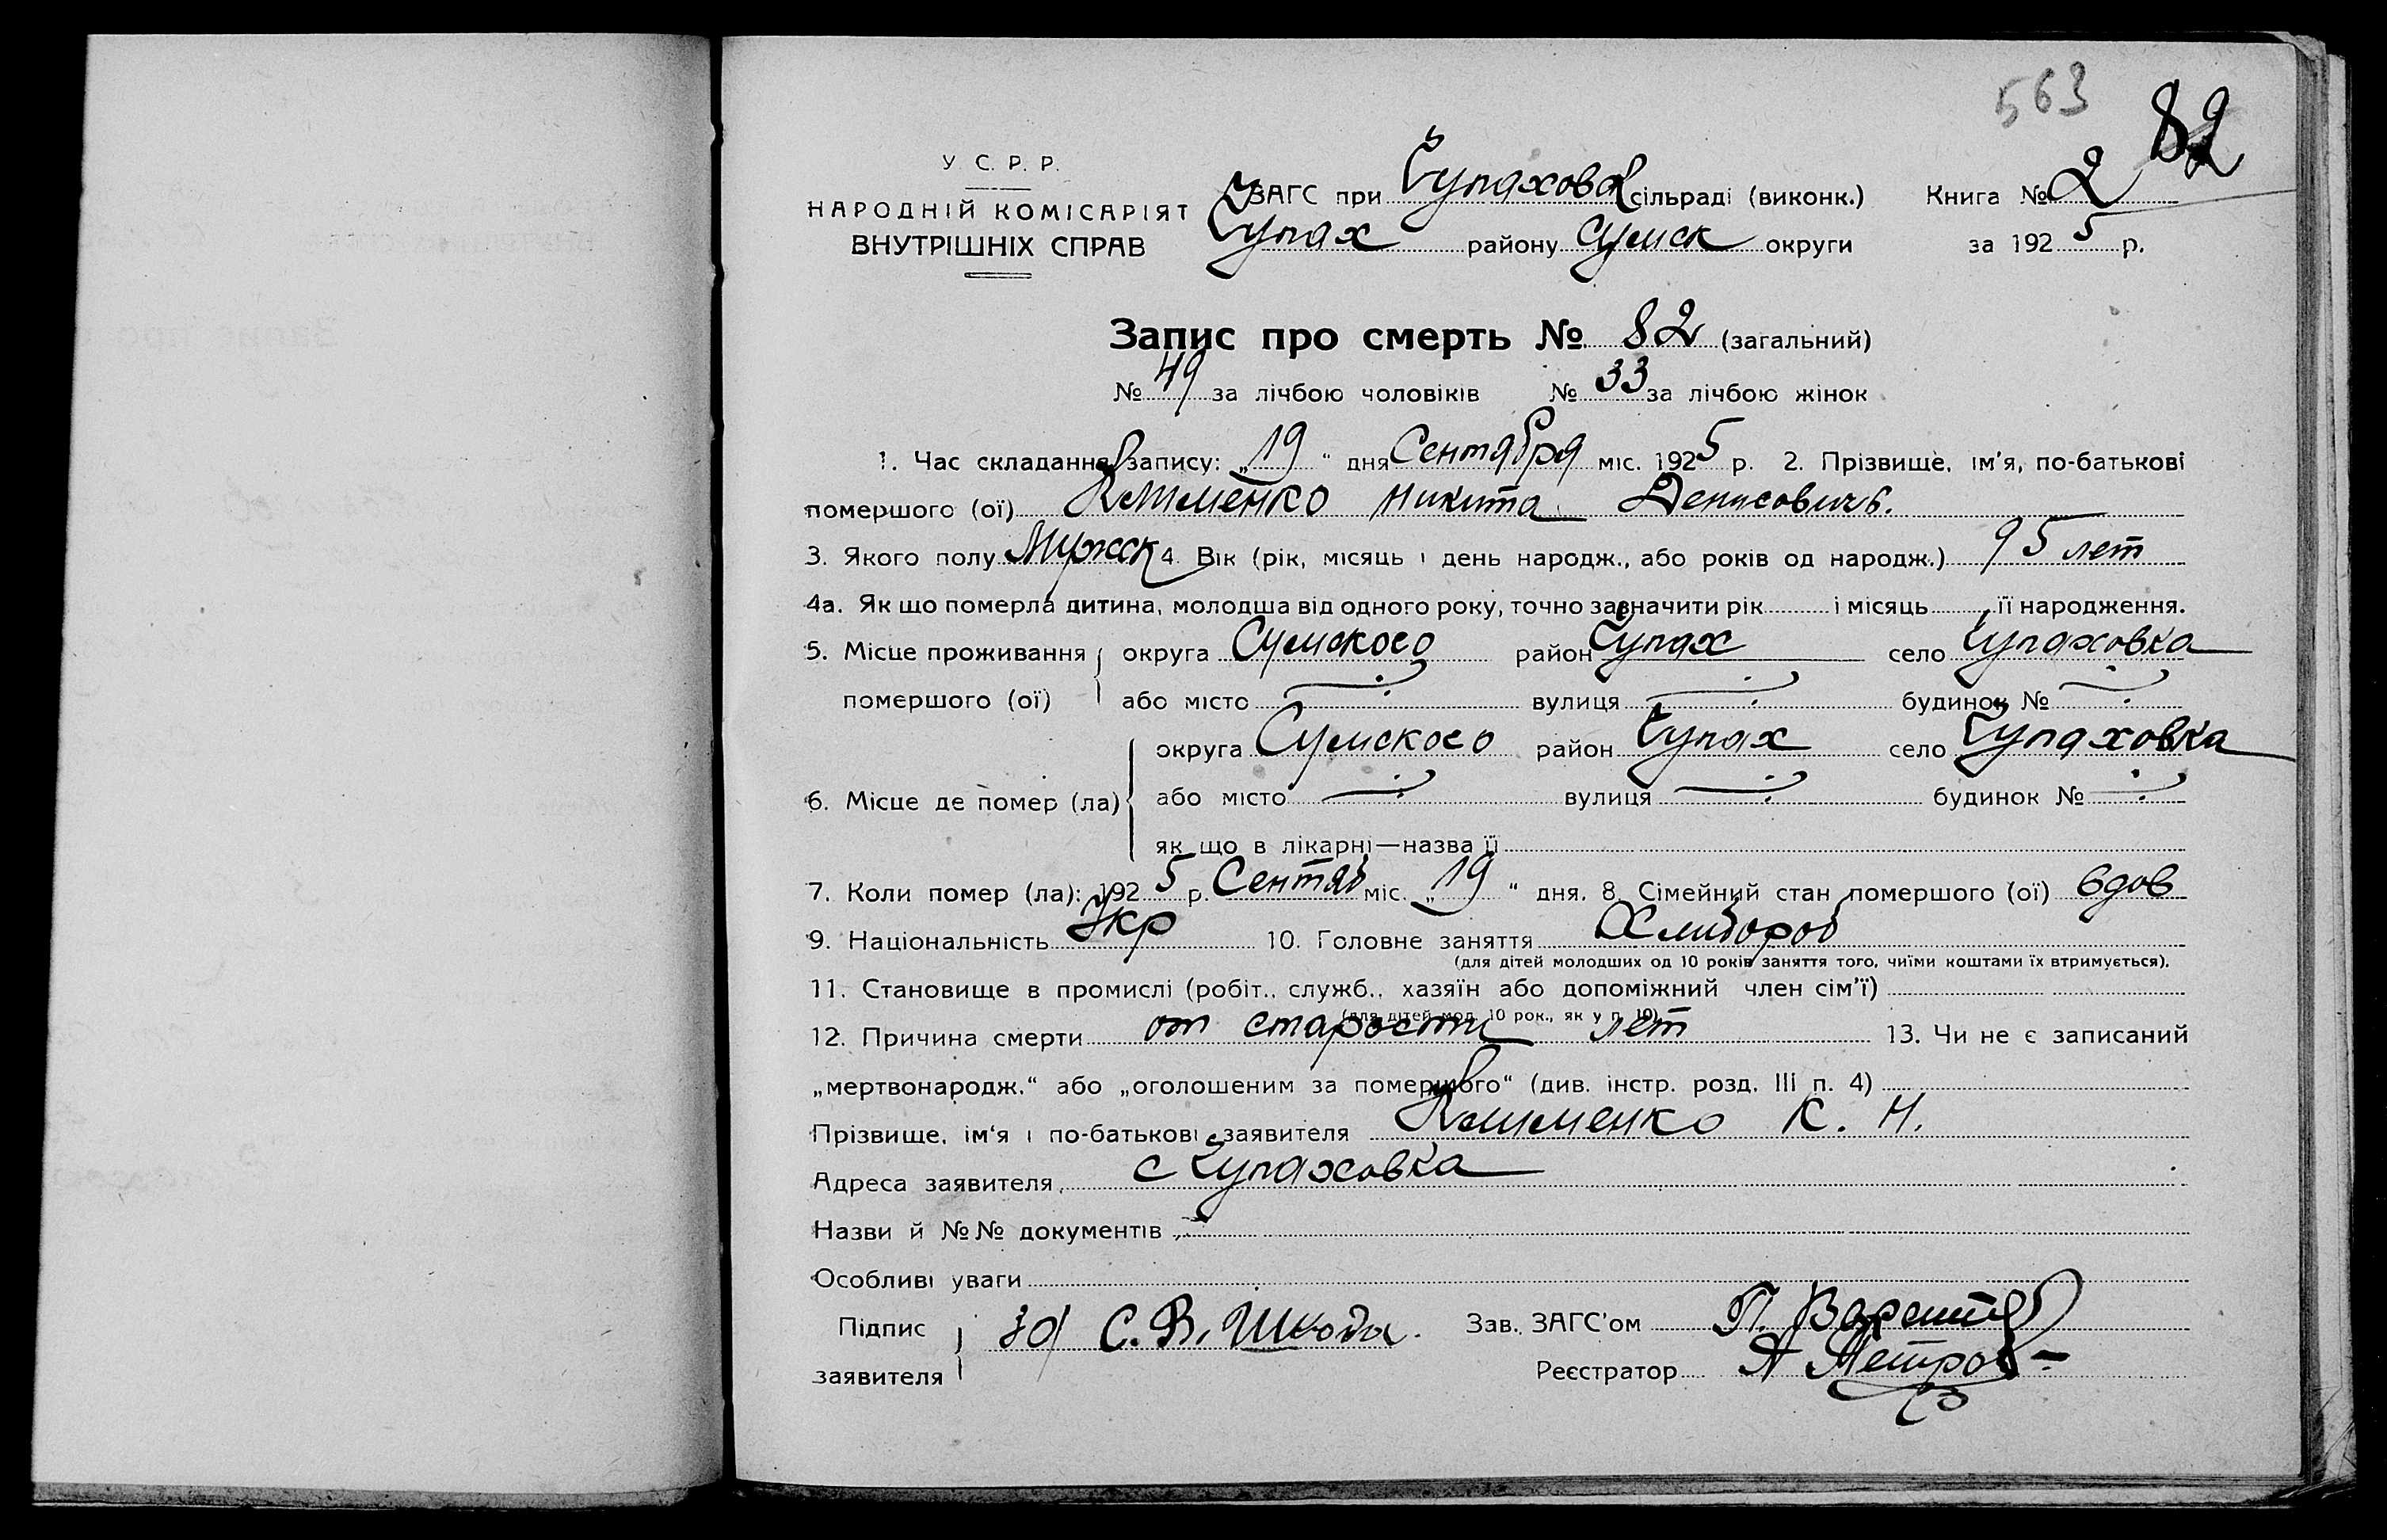 563 82
У. С. Р. Р.
НАРОДНІЙ КОМІСАРІЯТ
ВНУТРІШНІХ СПРАВ
ЗАГС при Чупаховск сільраді (виконк.) Книга № 2
Чупах району Сумск округи за 1925 р.
Запис про смерть № 82 (загальний)
№ 49 за лічбою чоловіків № 33 за лічбою жінок
1. Час складання запису: „19“ дня Сентября міс. 1925 р. 2. Прізвище, ім'я, по-батькові
помершого (ої) Клименко Никита Денисовичъ.
3. Якого полу Мужск 4. Вік (рік, місяць і день народж., або років од народж.) 95 лет
4а. Як що померла дитина, молодша від одного року, точно зазначити рік і місяць її народження.
5. Місце проживання округа Сумского район Чупах село Чупаховка
помершого (ої) або місто вулиця будинок №
округа Сумского район Чупах село Чупаховка
6. Місце де помер (ла) або місто вулиця будинок №
як що в лікарні—назва її
7. Коли помер (ла): 1925 р. Сентяб міс. „19“ дня. 8. Сімейний стан помершого (ої) вдов
9. Національність Укр 10. Головне заняття Хлибороб
(для дітей молодших од 10 років заняття того, чиїми коштами їх втримується).
11. Становище в промислі (робіт., служб., хазяїн або допоміжний член сім'ї)
(для дітей мол. 10 рок., як у п. 10)
12. Причина смерти от старости лет 13. Чи не є записаний
„мертвонародж.“ або „оголошеним за помершого“ (див. інстр. розд. III п. 4)
Прізвище, ім'я і по-батькові заявителя Клименко К. Н.
Адреса заявителя с Чупаховка
Назви й №№ документів
Особливі уваги
Підпис за С. В. Шкода. Зав. ЗАГС'ом П.
заявителя Реєстратор А Петров